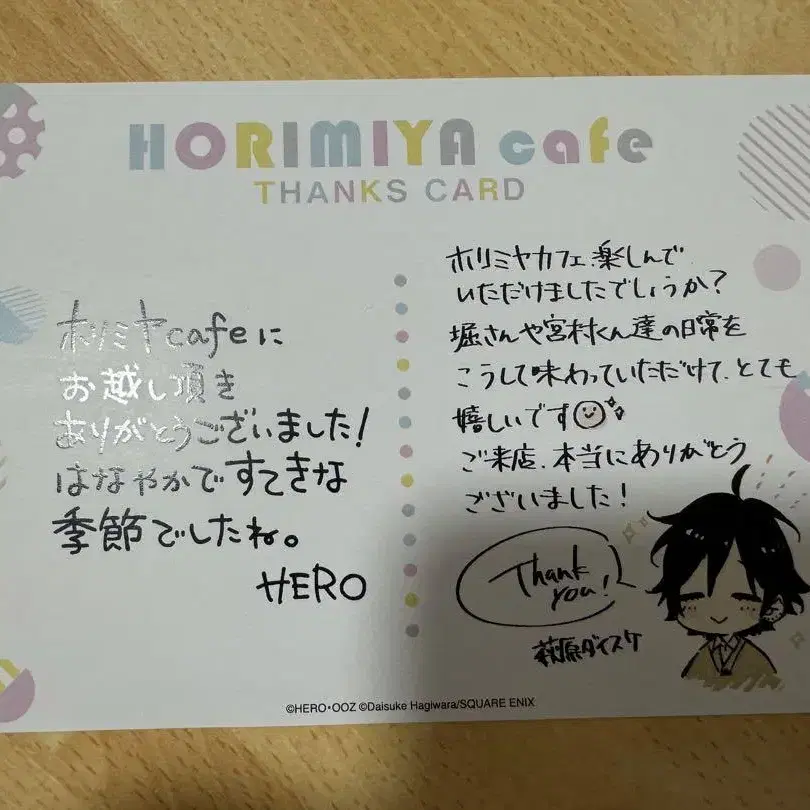 HORIMIYA cafe
THANKS CARD
ホリミヤcafeに
お越し頂き
ありがとうございました!
はなやかですてきな
季節でしたね。
HERO
ホリミヤカフェ、楽しんで
いただけましたでしょうか?
堀さんや宮村くん達の日常を
こうして味わっていただけて、とても
嬉しいです
ご来店、本当にありがとう
ございました!
Thank
you!
萩原ダイスケ
©HERO・OOZ ©Daisuke Hagiwara/SQUARE ENIX